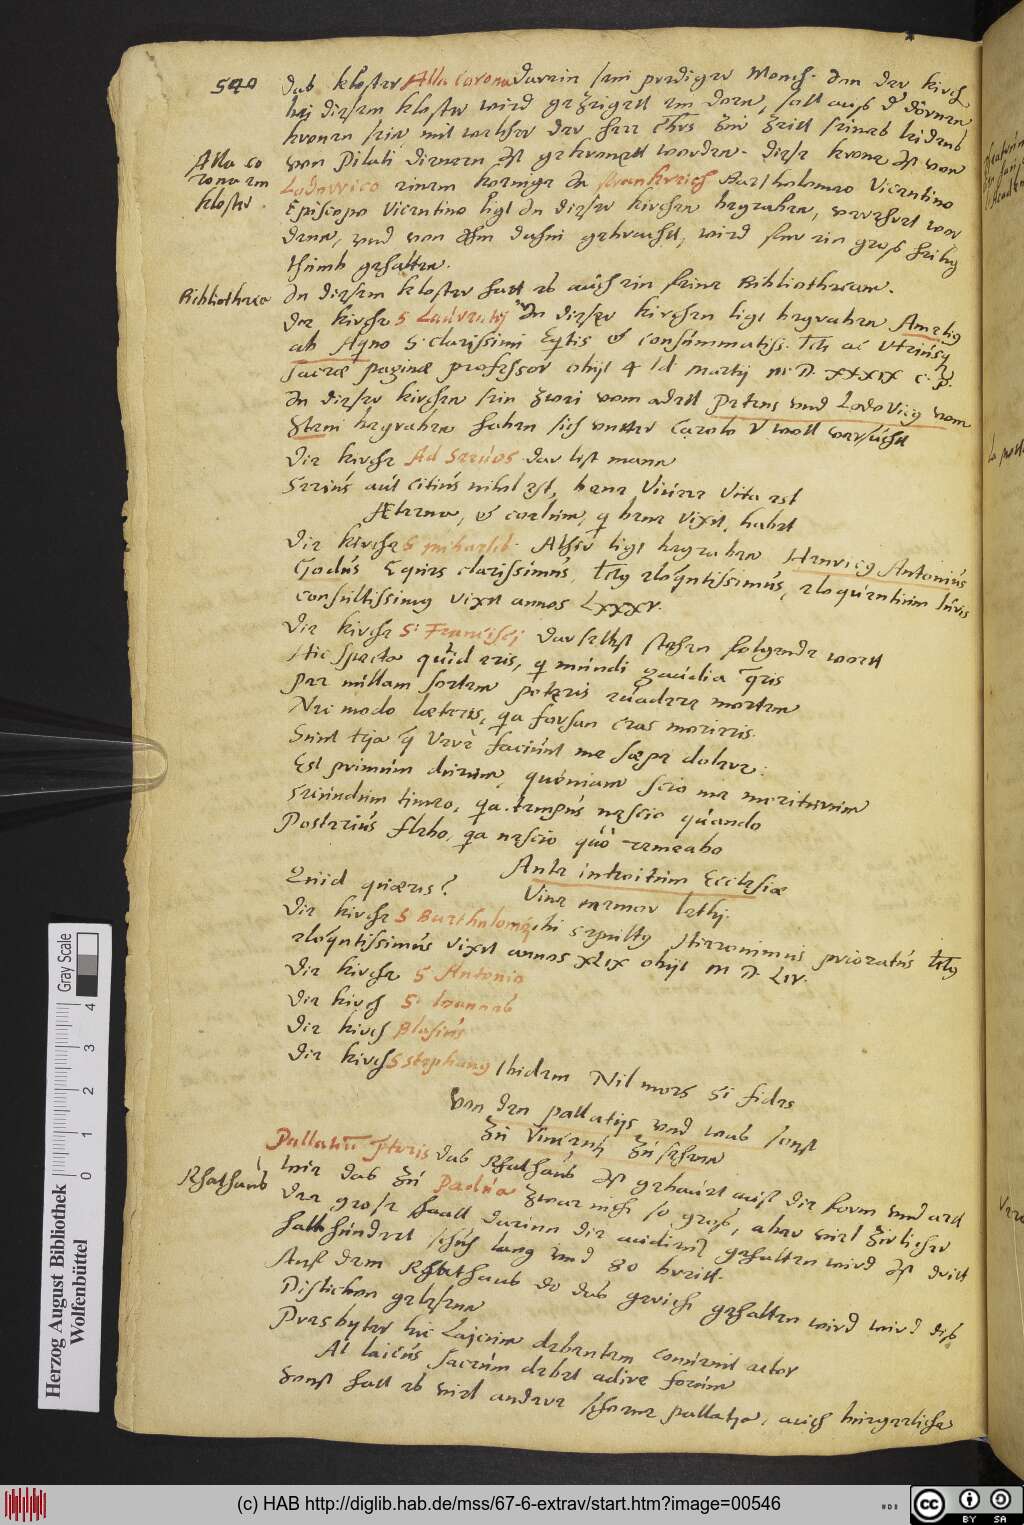 540
das kloster Alla Corona darein sein prediger Monch. dan der kirch
bei diesem kloster wird gezeiget ein dorn, soll auß der dörnen
kronen sein mit welcher der herr Christus zur zeitt seines leidens
von Pilati dienern ist gekronett worden. diese krone ist von
Alla co
rona ein
kloster.
Lodovico einem koenige in Franckreich Bartholomeo Vicentino
Episcopo Vicentino ligt in dieser kirchen begraben, verehret wor
denn, und von ihm dahin gebracht, wird fur ein groß heilig
thumb gehalten.
Bibliotheca
In diesem kloster hatt es auch ein feine Bibliothecam.
die kirche S Laurentij In dieser kirchen ligt begraben Amelig
ab Aqno S. clarissimi Eqtis & consummatiss. 
sacræ paginæ professor obijt 4 Id Martij M.D. XXXIX
In dieser kirchen sein zwei vom adell Petrus und Lodovicus vom
Stein begraben haben sich unter Carolo V woll versucht
Die kirche Ad Servos dar list mann
Serius aut citius nihil est, bene vivere vita est
Æterna, & coelum, q bene vixit, habet
Die kirche S michaelis. Alhir ligt begraben Henricus Antonius
Godus Eques clarissimus, eloquentissimus, eloquentium Iuris
consultissimus vixit annos LXXXV.
Die kirche S. Francisci darselbst stehen folgende wortt
Hic specta quid eris, q mundi gaudia qris
Per nullam sortem poteris evadere mortem
Nec modo læteris, qa forsan cras morieris.
Sunt tria q vere faciunt me sæpe dolere:
Est primum durum, quoniam scio me moriturum
Secundum timeo, qa tempus nescio quando
Posterius flebo, qa nescio quo remeabo
Ante introitum Ecclesiæ
Quid quæris? Vive memor lethi.
Die kirche S Bartholomei ibi sepultus Hieronimus
eloquentissimus vixit annos XLIX obijt M D. LIV.
Die kirche S Antonio
Die kirch S. Ioannes
Die kirch Blasius
Die kirch S Stephanus Ibidem Nil mors si fides
Von den pallatijs und was sonst
zu Vincentz zu sehen
Pallatium Iuris das Rhathaus ist gebauet auff die form und artt
Rhathaus
wie das zu Padua zwar nicht so groß, aber viel zirlicher
der große saall darinn die audientz gehalten wird ist dritt
halb hundert schuch lang und 80 breitt.
Auf dem Rhathaus do das gericht gehalten wird wird diß
Distichon gelesen
Presbyter hic Laicum debentem convenit actor
At laicus sacrum debet adire forum
Sonst hatt es viel andere schone pallatia, auch burgerliche
Gray Scale
0 1 2 3 4
Herzog August Bibliothek
Wolfenbüttel
(c) HAB http://diglib.hab.de/mss/67-6-extrav/start.htm?image=00546
cc BY SA